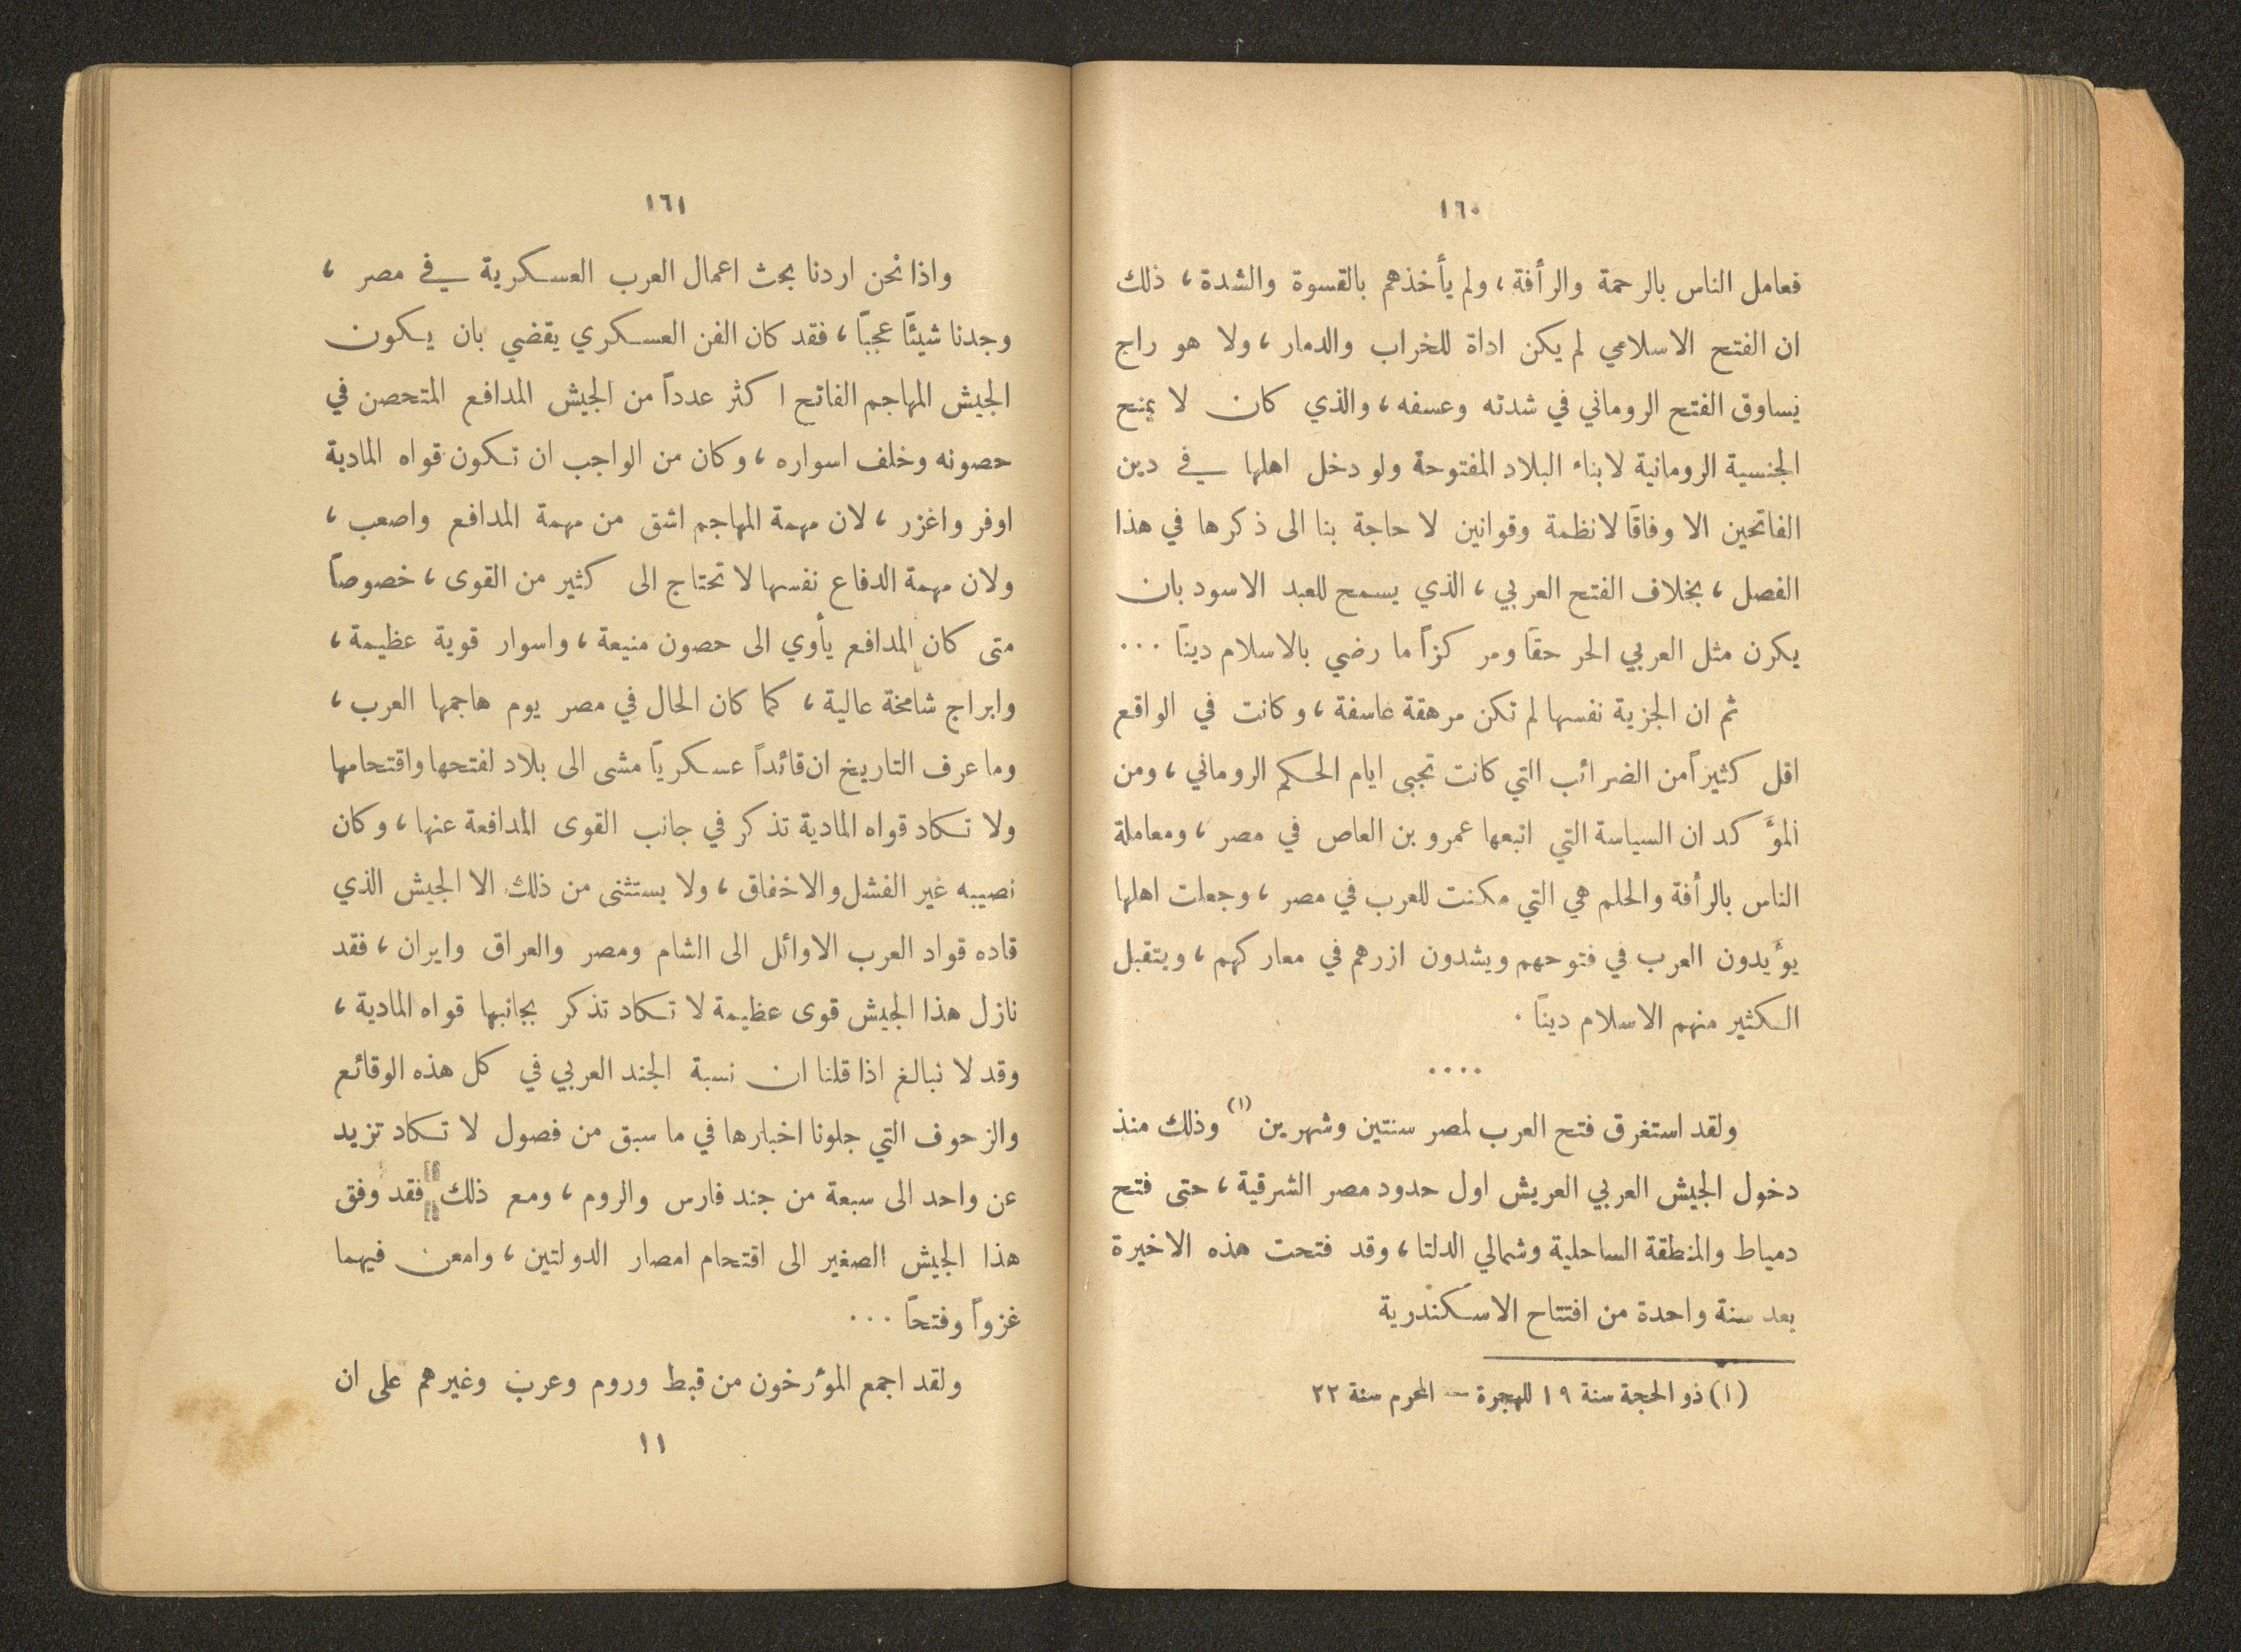 ١٦٠
فعامل الناس بالرحمة والرأفة، ولم يأخذهم بالقسوة والشدة، ذلك
ان الفتح الاسلامي لم يكن اداة للخراب والدمار، ولا هو راج
يساوق الفتح الروماني في شدته وعسفه، والذي كان لا يمنح
الجنسية الرومانية لابناء البلاد المفتوحة ولو دخل اهلها في دين
الفاتحين الا وفاقًا لانظمة وقوانين لا حاجة بنا الى ذكرها في هذا
الفصل، بخلاف الفتح العربي، الذي يسمح للعبد الاسود بان
يكرن مثل العربي الحر حقًا ومركزاً ما رضي بالاسلام دينًا ...
ثم ان الجزية نفسها لم تكن مرهقة عاسفة، وكانت في الواقع
اقل كثيراً من الضرائب التي كانت تجبى ايام الحكم الروماني، ومن
المؤكد ان السياسة التي اتبعها عمرو بن العاص في مصر، ومعاملة
الناس بالرأفة والحلم هي التي مكنت للعرب في مصر، وجعلت اهلها
يؤيدون العرب في فتوحهم ويشدون ازرهم في معاركهم، ويتقبل
الكثير منهم الاسلام دينًا .
....
ولقد استغرق فتح العرب لمصر سنتين وشهرين (١) وذلك منذ
دخول الجيش العربي العريش اول حدود مصر الشرقية، حتى فتح
دمياط والمنطقة الساحلية وشمالي الدلتا، وقد فتحت هذه الاخيرة
بعد سنة واحدة من افتتاح الاسكندرية
(١) ذو الحجة سنة ١٩ للهجرة — المحرم سنة ٢٢
١٦١
واذا نحن اردنا بحث اعمال العرب العسكرية في مصر ،
وجدنا شيئًا عجبًا، فقد كان الفن العسكري يقضي بان يكون
الجيش المهاجم الفاتح اكثر عدداً من الجيش المدافع المتحصن في
حصونه وخلف اسواره، وكان من الواجب ان تكون قواه المادية
اوفر واغزر، لان مهمة المهاجم اشق من مهمة المدافع واصعب،
ولان مهمة الدفاع نفسها لا تحتاج الى كثير من القوى، خصوصاً
متى كان المدافع يأوي الى حصون منيعة، واسوار قوية عظيمة،
وابراج شامخة عالية، كما كان الحال في مصر يوم هاجمها العرب،
وما عرف التاريخ ان قائداً عسكريًا مشى الى بلاد لفتحها واقتحامها
ولا تكاد قواه المادية تذكر في جانب القوى المدافعة عنها، وكان
نصيبه غير الفشل والاخفاق، ولا يستثنى من ذلك الا الجيش الذي
قاده قواد العرب الاوائل الى الشام ومصر والعراق وايران، فقد
نازل هذا الجيش قوى عظيمة لا تكاد تذكر بجانبها قواه المادية،
وقد لا نبالغ اذا قلنا ان نسبة الجند العربي في كل هذه الوقائع
والزحوف التي جلونا اخبارها في ما سبق من فصول لا تكاد تزيد
عن واحد الى سبعة من جند فارس والروم، ومع ذلك فقد وفق
هذا الجيش الصغير الى اقتحام امصار الدولتين، وامعن فيهما
غزواً وفتحاً ...
ولقد اجمع المؤرخون من قبط وروم وعرب وغيرهم على ان
١١